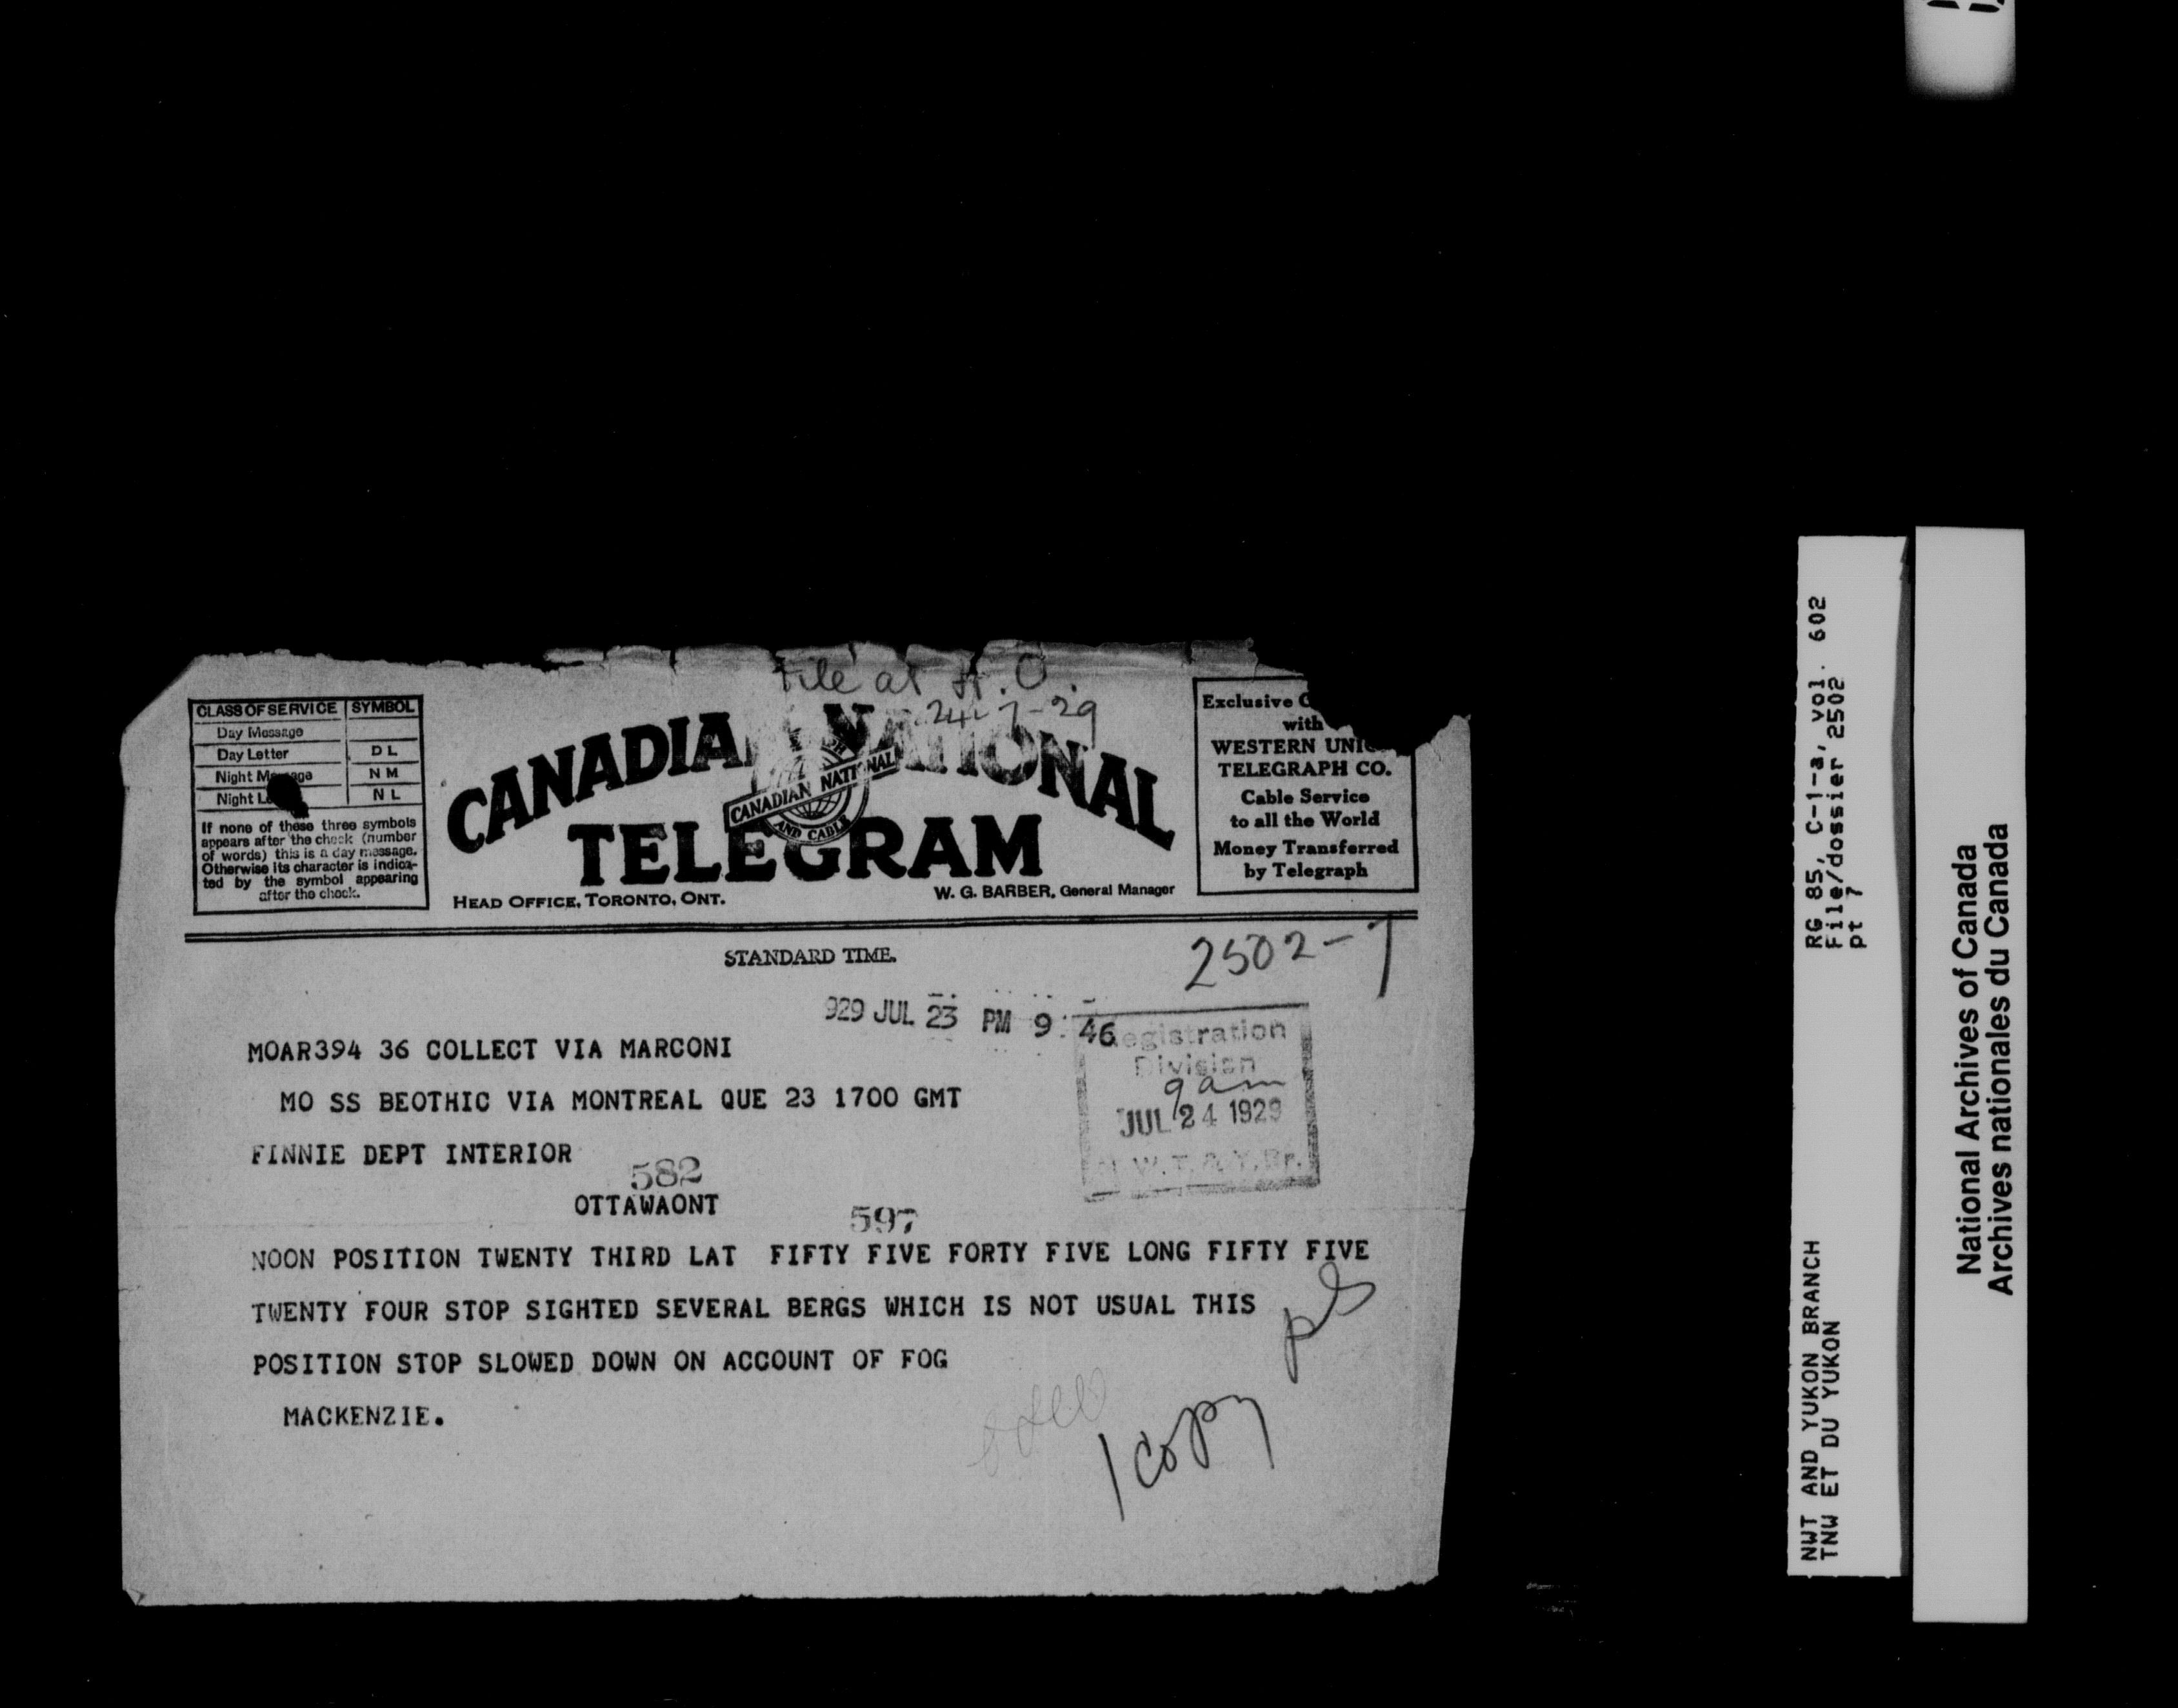 File at H.O.
24-7-29
CLASS OF SERVICE SYMBOL
Day Message
Day Letter D L
Night Message N M
Night N L
If none of these three symbols
appears after the check (number
of words) this is a day message.
Otherwise its character is indica-
ted by the symbol appearing
after the check.
CANADIAN NATIONAL
TELEGRAM
CANADIAN NATIONAL
AND CABLE
HEAD OFFICE, TORONTO, ONT.
W. G. BARBER, General Manager
Exclusive
with
WESTERN UNION
TELEGRAPH CO.
Cable Service
to all the World
Money Transferred
by Telegraph
STANDARD TIME.
2502-7
929 JUL 23 PM 9:46
Registration
Division
9 am
JUL 24 1929
N.W.T. & Y. Br.
MOAR394 36 COLLECT VIA MARCONI
MO SS BEOTHIC VIA MONTREAL QUE 23 1700 GMT
FINNIE DEPT INTERIOR
582
OTTAWAONT
597
NOON POSITION TWENTY THIRD LAT FIFTY FIVE FORTY FIVE LONG FIFTY FIVE
TWENTY FOUR STOP SIGHTED SEVERAL BERGS WHICH IS NOT USUAL THIS
POSITION STOP SLOWED DOWN ON ACCOUNT OF FOG
MACKENZIE.
1 copy
RG 85, C-1-a, vol. 602
File/dossier 2502
pt 7
NWT AND YUKON BRANCH
TNW ET DU YUKON
National Archives of Canada
Archives nationales du Canada